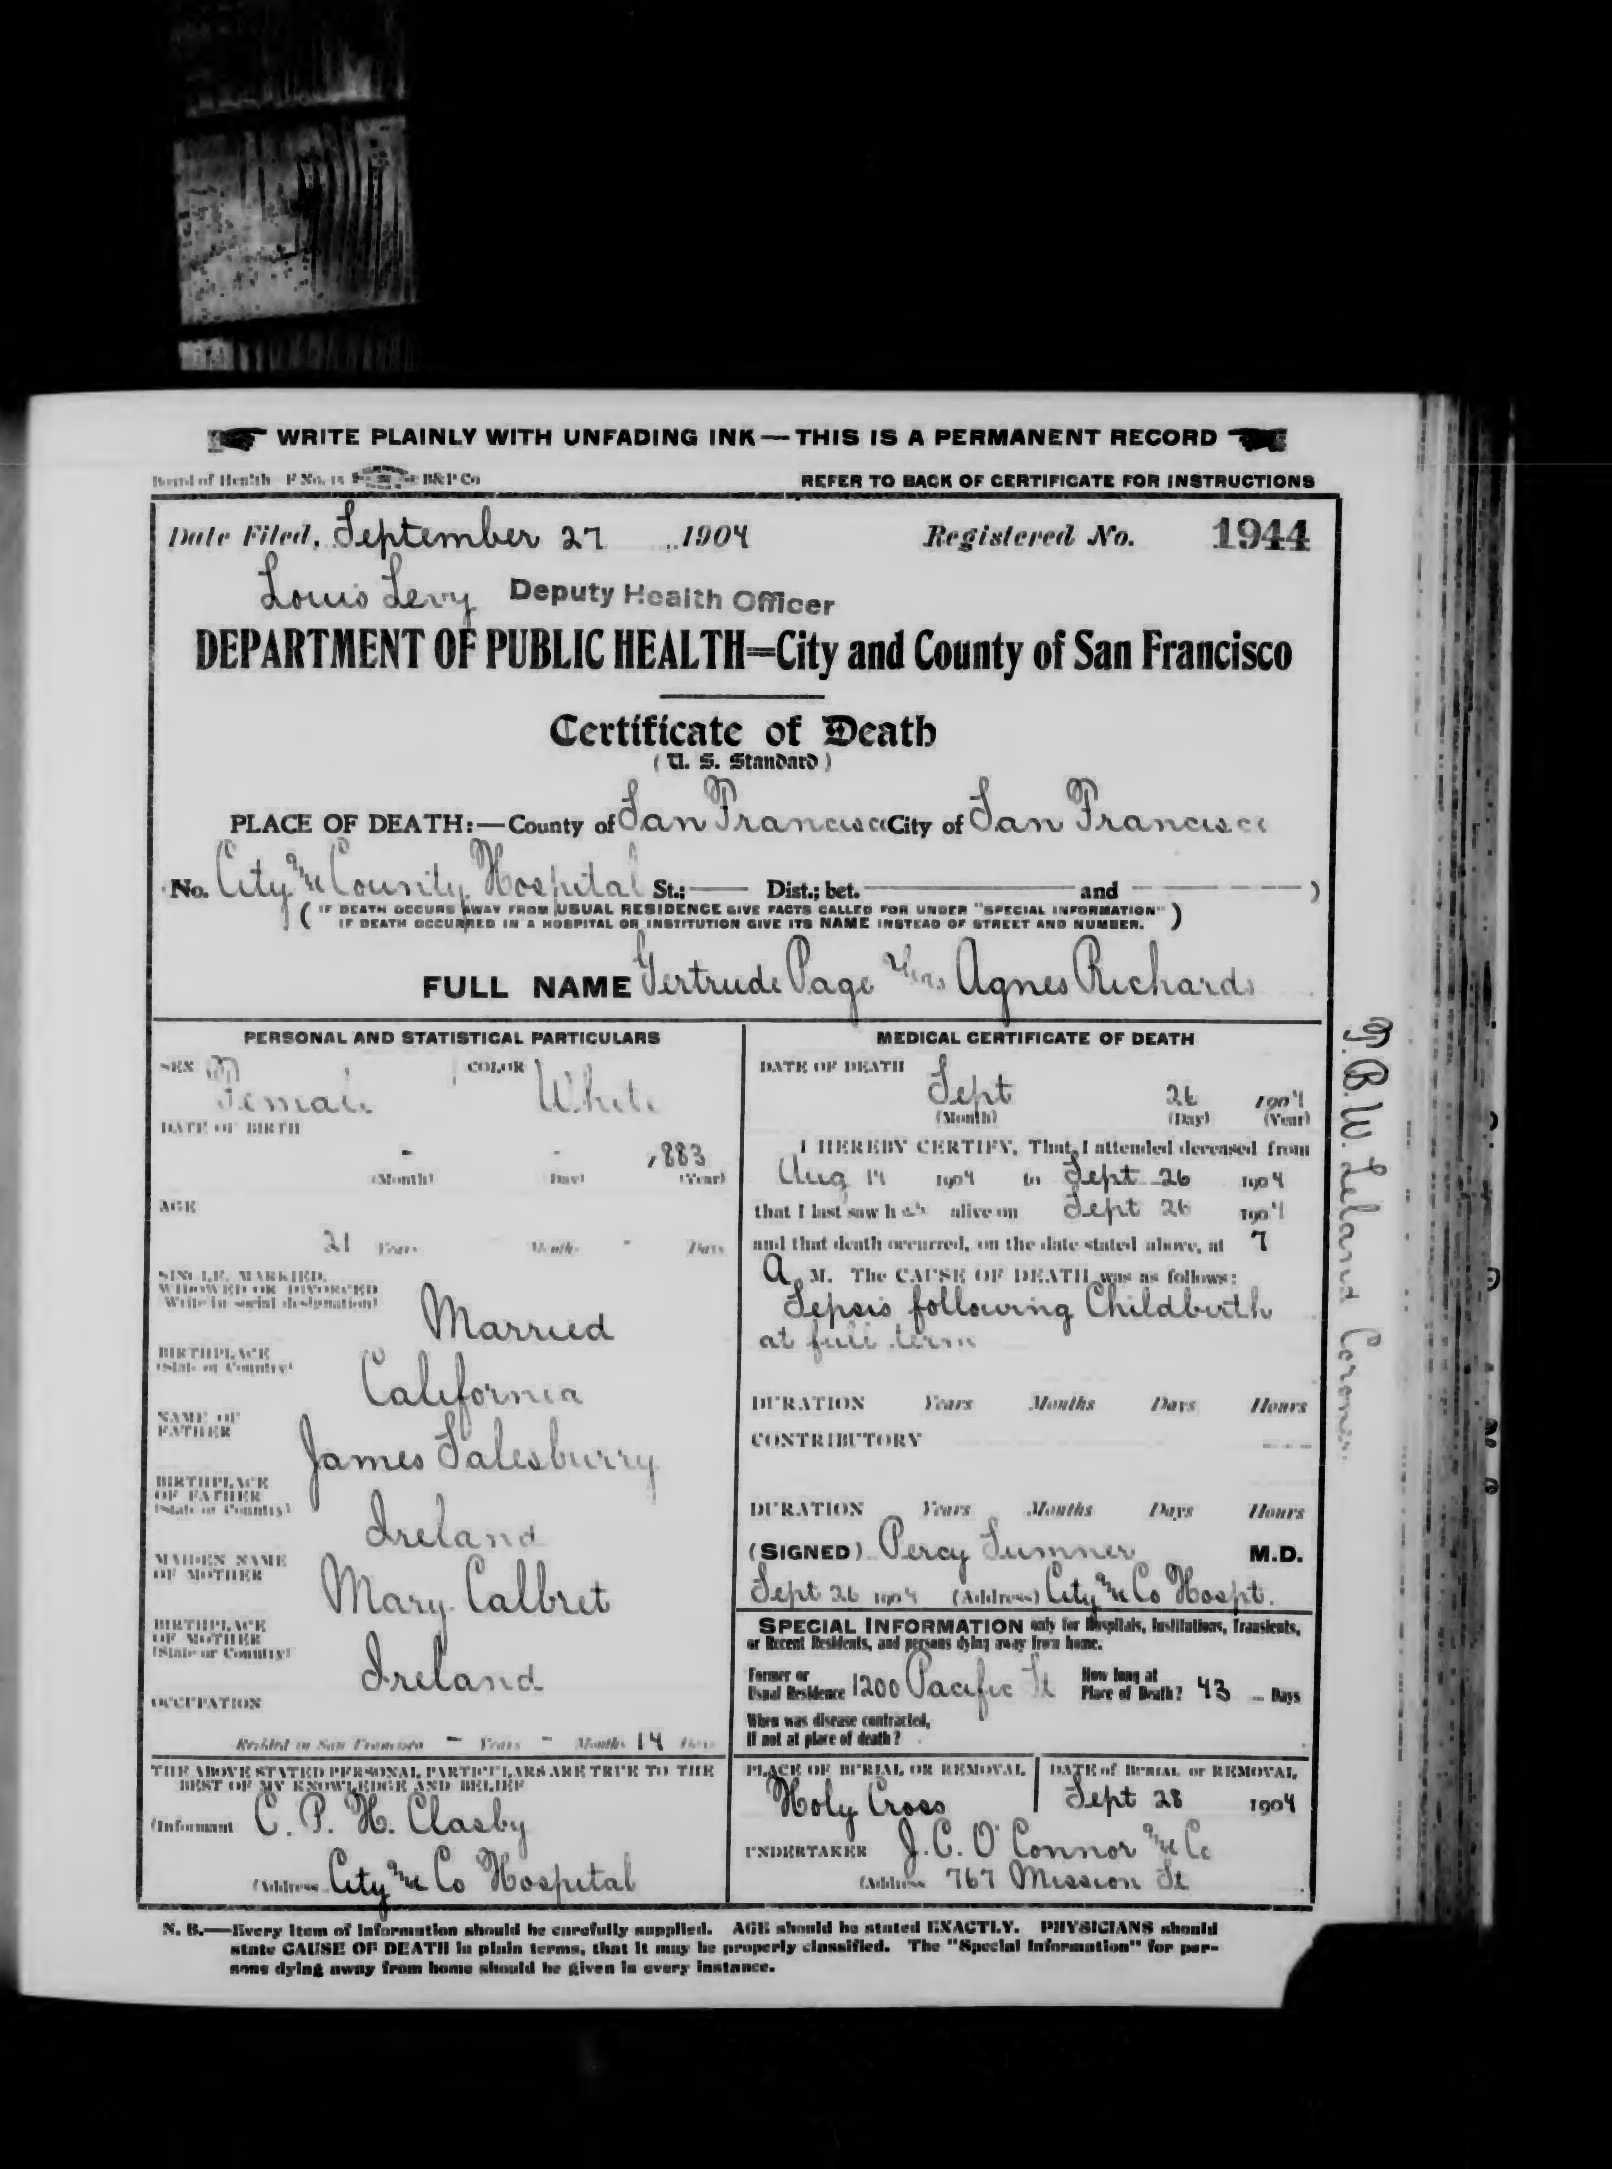 WRITE PLAINLY WITH UNFADING INK — THIS IS A PERMANENT RECORD
Board of Health F No. 15 B&P Co
REFER TO BACK OF CERTIFICATE FOR INSTRUCTIONS
Date Filed, September 27 1904 Registered No. 1944
Louis Levy Deputy Health Officer
DEPARTMENT OF PUBLIC HEALTH=City and County of San Francisco
Certificate of Death
(U. S. Standard)
PLACE OF DEATH:—County of San Francisco City of San Francisco
No. City and County Hospital St.; — Dist.; bet. — and — )
( IF DEATH OCCURS AWAY FROM USUAL RESIDENCE GIVE FACTS CALLED FOR UNDER "SPECIAL INFORMATION" )
IF DEATH OCCURRED IN A HOSPITAL OR INSTITUTION GIVE ITS NAME INSTEAD OF STREET AND NUMBER.
FULL NAME Gertrude Page Agnes Richards
PERSONAL AND STATISTICAL PARTICULARS
SEX Female COLOR White
DATE OF BIRTH
- - 1883
(Month) (Day) (Year)
AGE
21 Years Months - Days
SINGLE, MARRIED,
WIDOWED OR DIVORCED
(Write in social designation)
Married
BIRTHPLACE
(State or Country)
California
NAME OF
FATHER
James Salesburry
BIRTHPLACE
OF FATHER
(State or Country)
Ireland
MAIDEN NAME
OF MOTHER
Mary Calbret
BIRTHPLACE
OF MOTHER
(State or Country)
Ireland
OCCUPATION
Resided in San Francisco - Years - Months 14 Days
THE ABOVE STATED PERSONAL PARTICULARS ARE TRUE TO THE
BEST OF MY KNOWLEDGE AND BELIEF
(Informant C. P. H. Clasby
(Address City and Co Hospital
MEDICAL CERTIFICATE OF DEATH
DATE OF DEATH
Sept 26 1904
(Month) (Day) (Year)
I HEREBY CERTIFY, That I attended deceased from
Aug 14 1904 to Sept 26 1904
that I last saw her alive on Sept 26 1904
and that death occurred, on the date stated above, at 7
A M. The CAUSE OF DEATH was as follows:
Sepsis following Childbirth
at full term
DURATION Years Months Days Hours
CONTRIBUTORY
DURATION Years Months Days Hours
(SIGNED) Percy Sumner M.D.
Sept 26 1904 (Address) City and Co Hospt.
SPECIAL INFORMATION only for Hospitals, Institutions, Transients,
or Recent Residents, and persons dying away from home.
Former or
Usual Residence 1200 Pacific St
How long at
Place of Death? 43 Days
When was disease contracted,
If not at place of death?
PLACE OF BURIAL OR REMOVAL
Holy Cross
DATE of BURIAL or REMOVAL
Sept 28 1904
UNDERTAKER J. C. O'Connor and Co
(Address 767 Mission St
T. B. W. Leland Coroner
N. B.—Every item of information should be carefully supplied. AGE should be stated EXACTLY. PHYSICIANS should
state CAUSE OF DEATH in plain terms, that it may be properly classified. The "Special Information" for per-
sons dying away from home should be given in every instance.